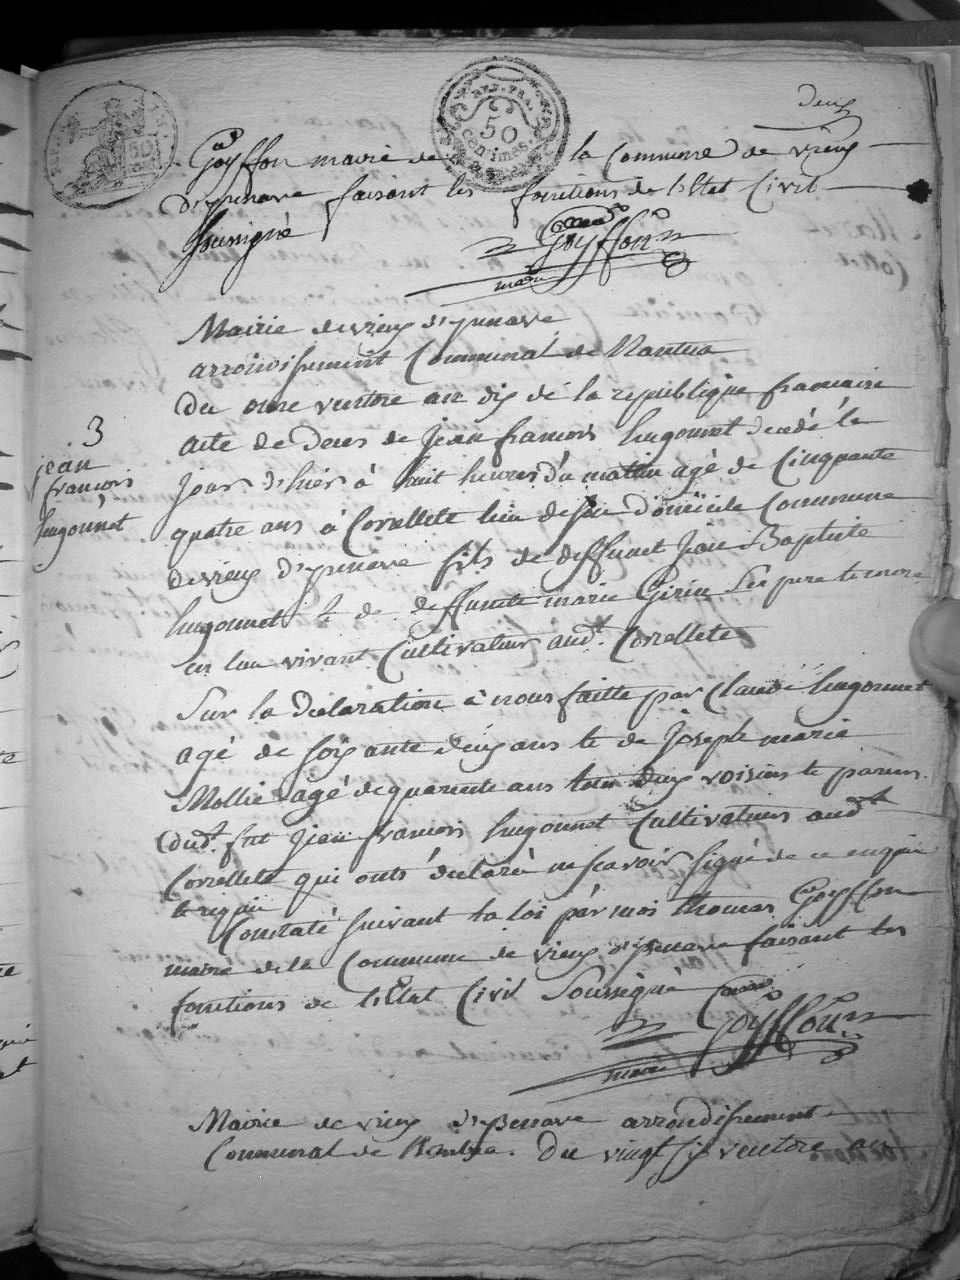 deux
REP. FRA.
50
centimes
50
Goÿffon maire de la Commune de vieux
d'yzenave faisant les fonctions de l'Etat Civil
soussigné
Goÿffon
maire
Mairie de vieux d'yzenave
arrondissement Communal de Nantua
Du onze ventose an dix de la republique francaise
3
jean
francois
hugonnet
acte de deces de Jean francois hugonnet decedé le
jour d'hier à huit heures du matin agé de Cinquante
quatre ans à Corcellete lieu de son Domicile Commune
de vieux d'yzenave fils de deffunct Jean Baptiste
hugonnet & de deffuncte marie Girin ses pere & mere
en leur vivant Cultivateurs aud.t Corcellete
Sur la declaration à nous faitte par Claude hugonnet
agé de soixante deux ans & de Joseph marie
Mollie agé de quarente ans tous deux voisins & parens
dud.t fut Jean francois hugonnet Cultivateurs aud.t
Corcellete qui onts declaré ne scavoir signé de ce enquis
& requis
Constaté suivant la loi par moi thomas Goÿffon
maire de la Commune de vieux d'yzenave faisant les
fonctions de l'Etat Civil Soussigné
Goÿffon
maire
Mairie de vieux d'yzenave arrondissement
Communal de Nantua. Du vingt six ventose an